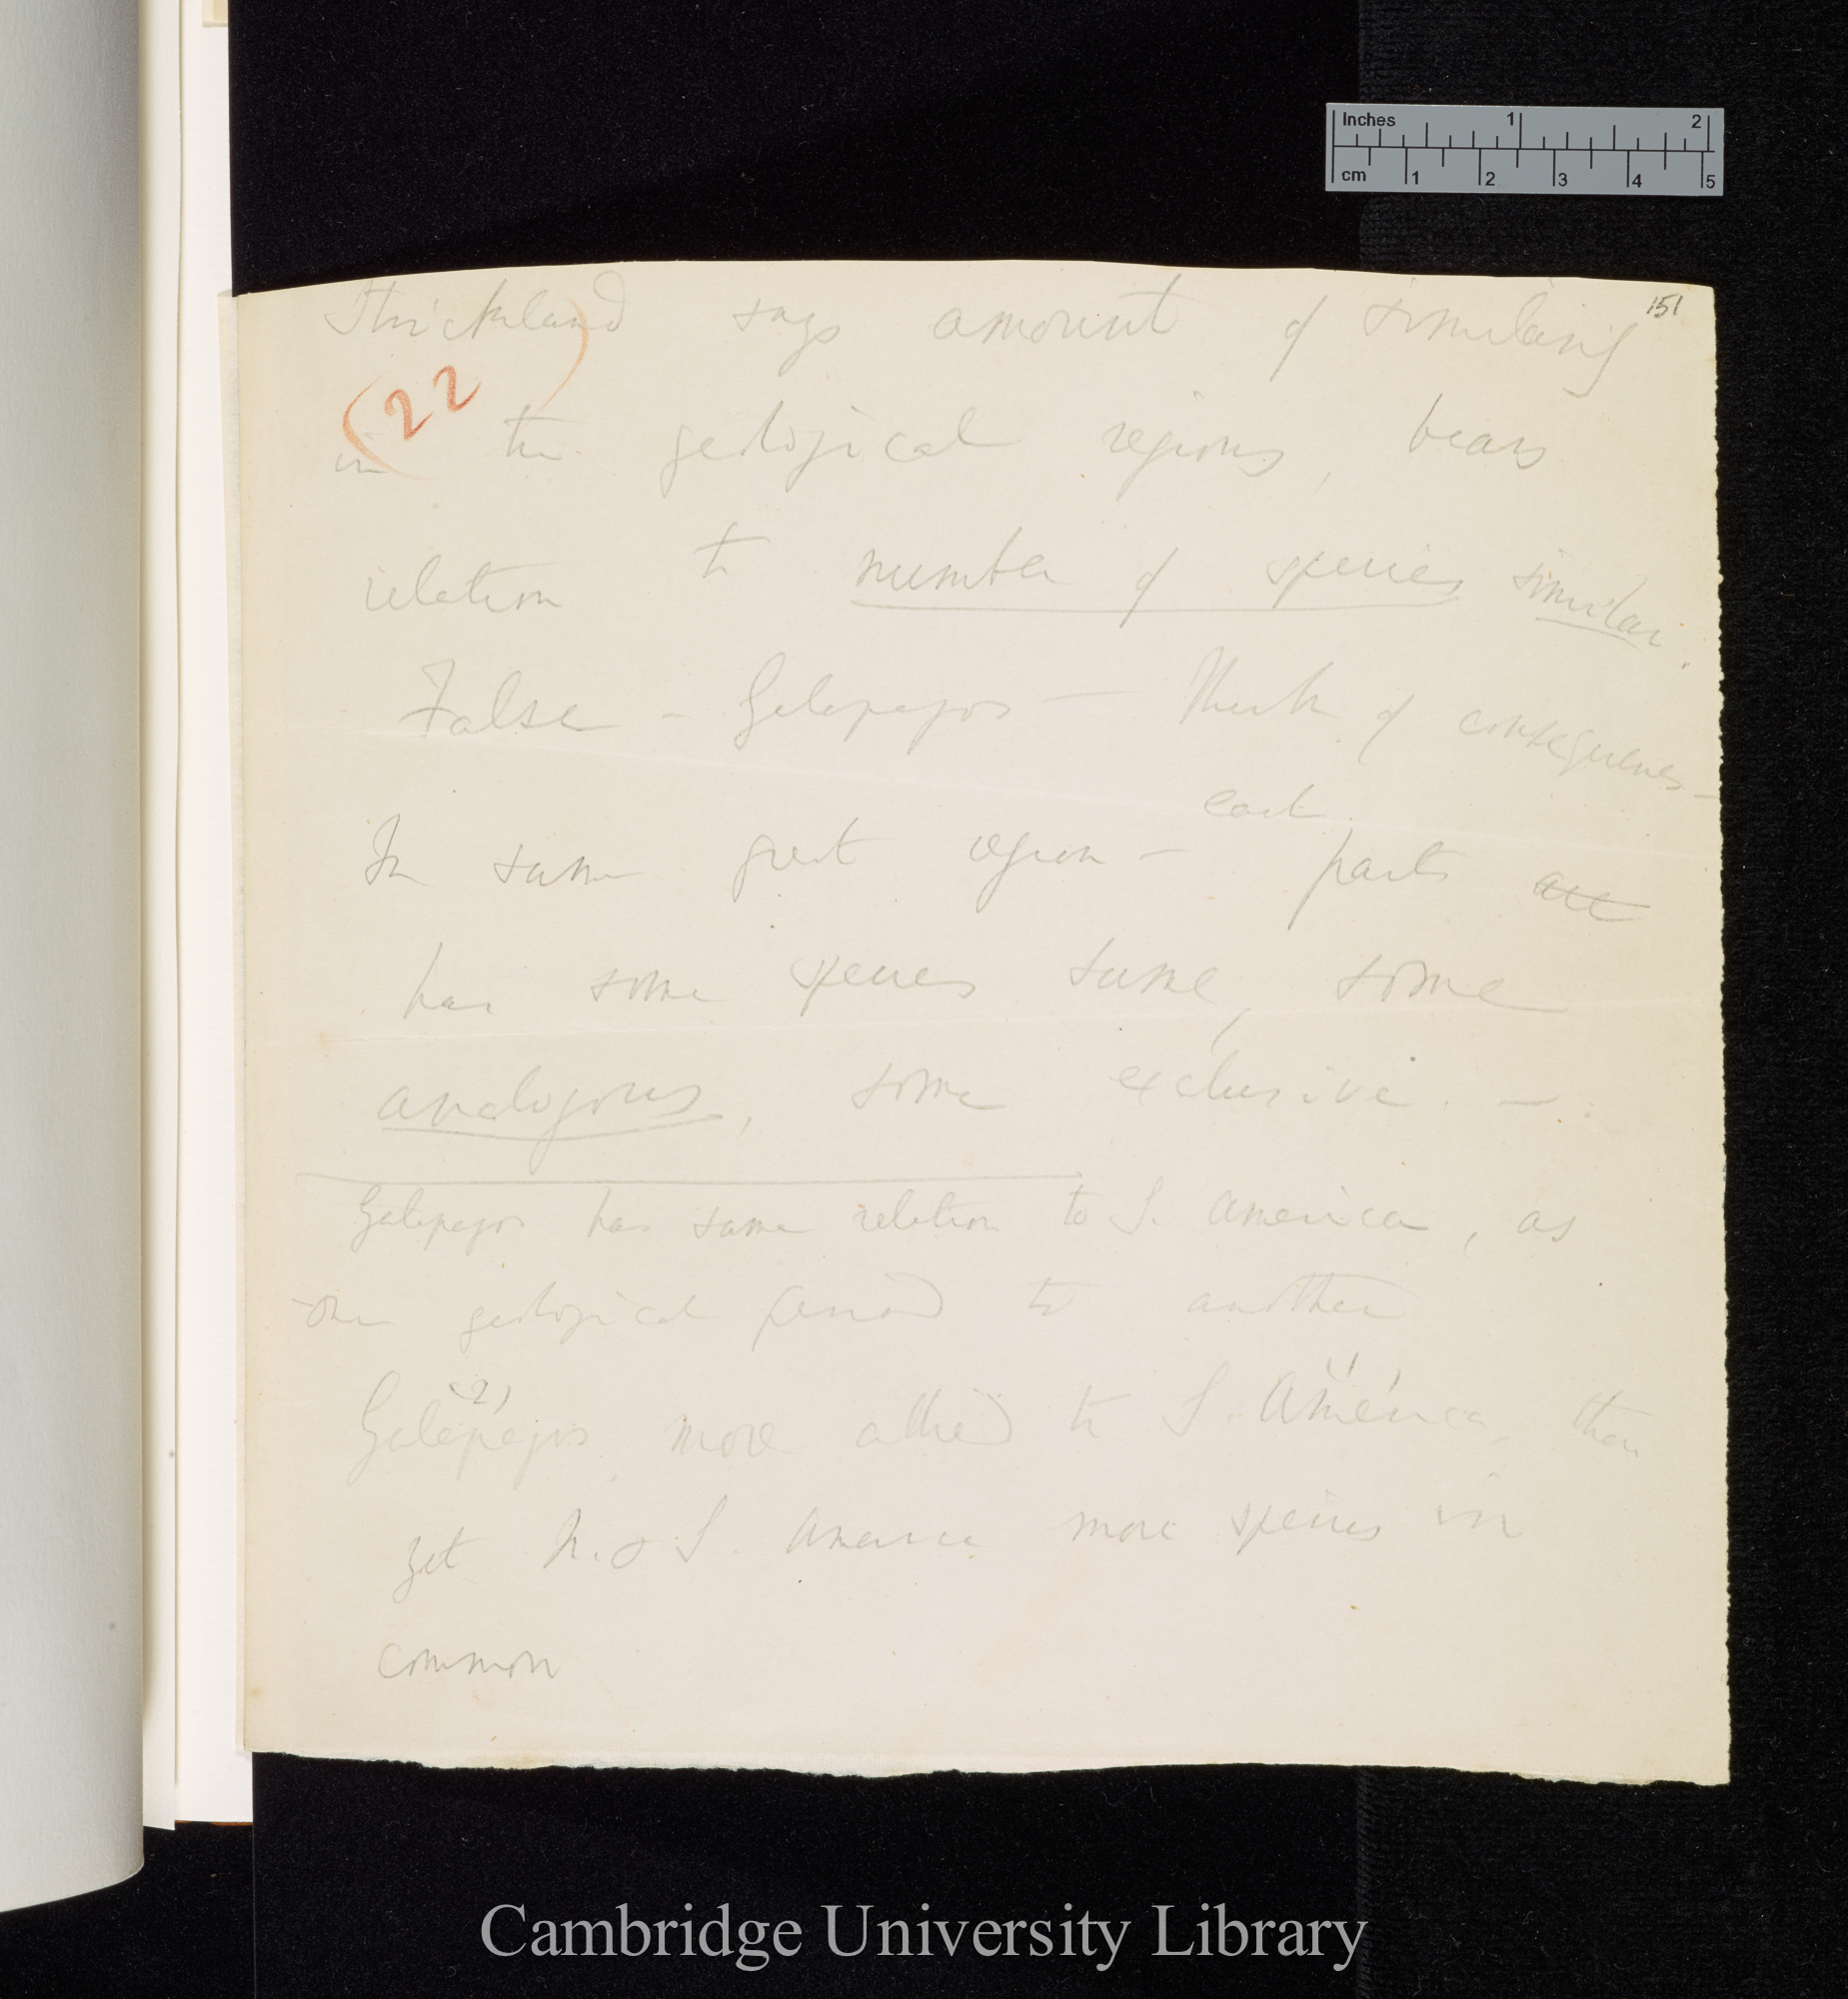 Inches 1 2
cm 1 2 3 4 5
151
Strickland says amount of similarity
(22)
in the geological regions, bears
relation to number of species similar.
False – Galapagos – Think of consequences –
each
In same great region – parts are
has some species same, some
analogous, some exclusive. –.
Galapagos has same relation to S. America, as
one geological period to another
(2) (1)
Galapagos more allied to S. America, than
yet N. & S. America more species in
common
Cambridge University Library